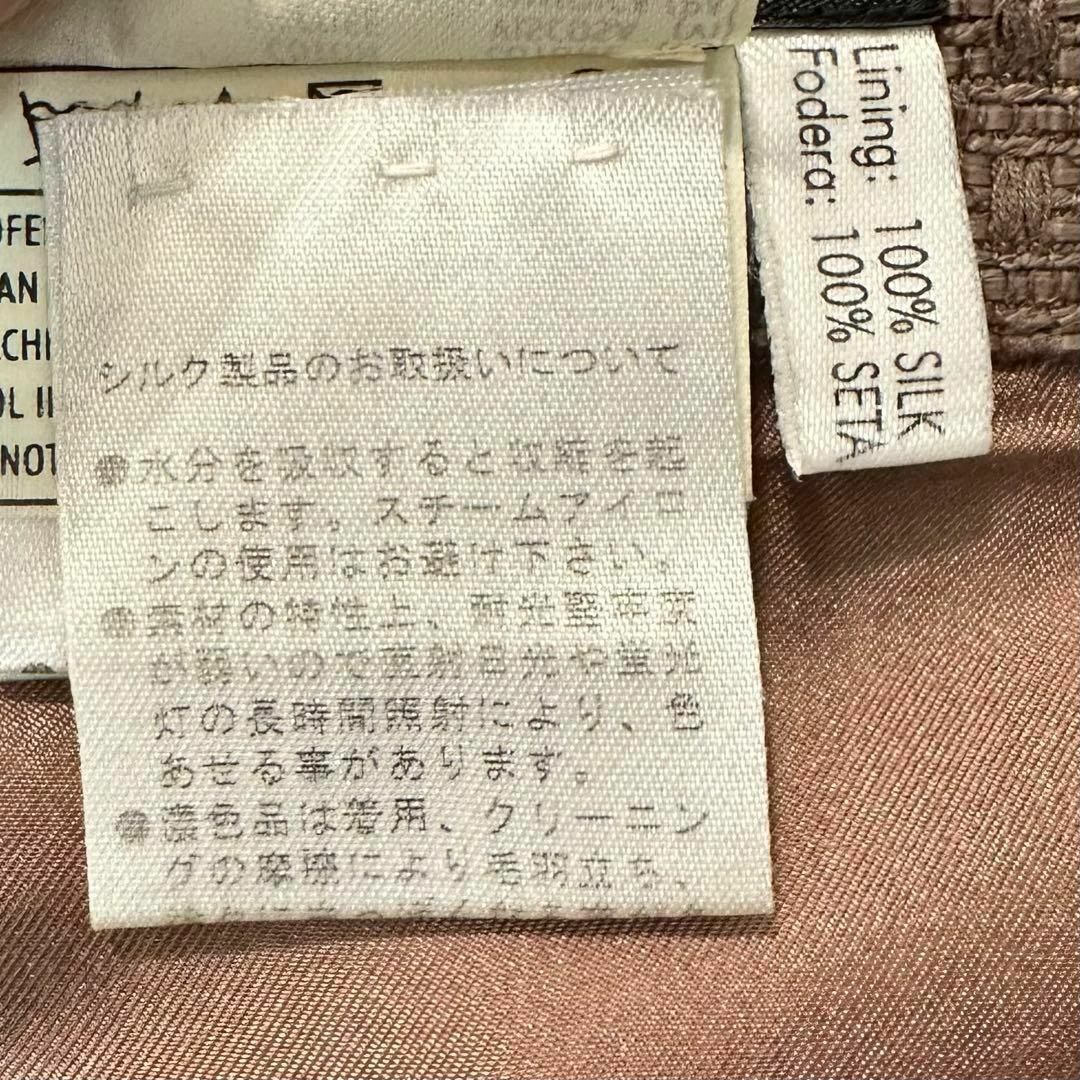 シルク製品のお取扱いについて
●水分を吸収すると収縮を起
こします。スチームアイロ
ンの使用はお避け下さい。
●素材の特性上、耐光堅牢度
が弱いので直射日光や蛍光
灯の長時間照射により、色
あせる事があります。
●濃色品は着用、クリーニン
グの摩擦により毛羽立ち、
Lining: 100% SILK
Fodera: 100% SETA
AN
NOT